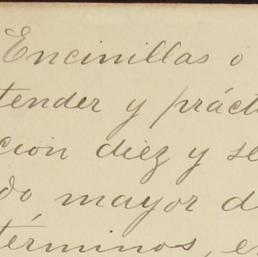 Encinillas o
tender y práct
cion diez y se
do mayor d
términos, e